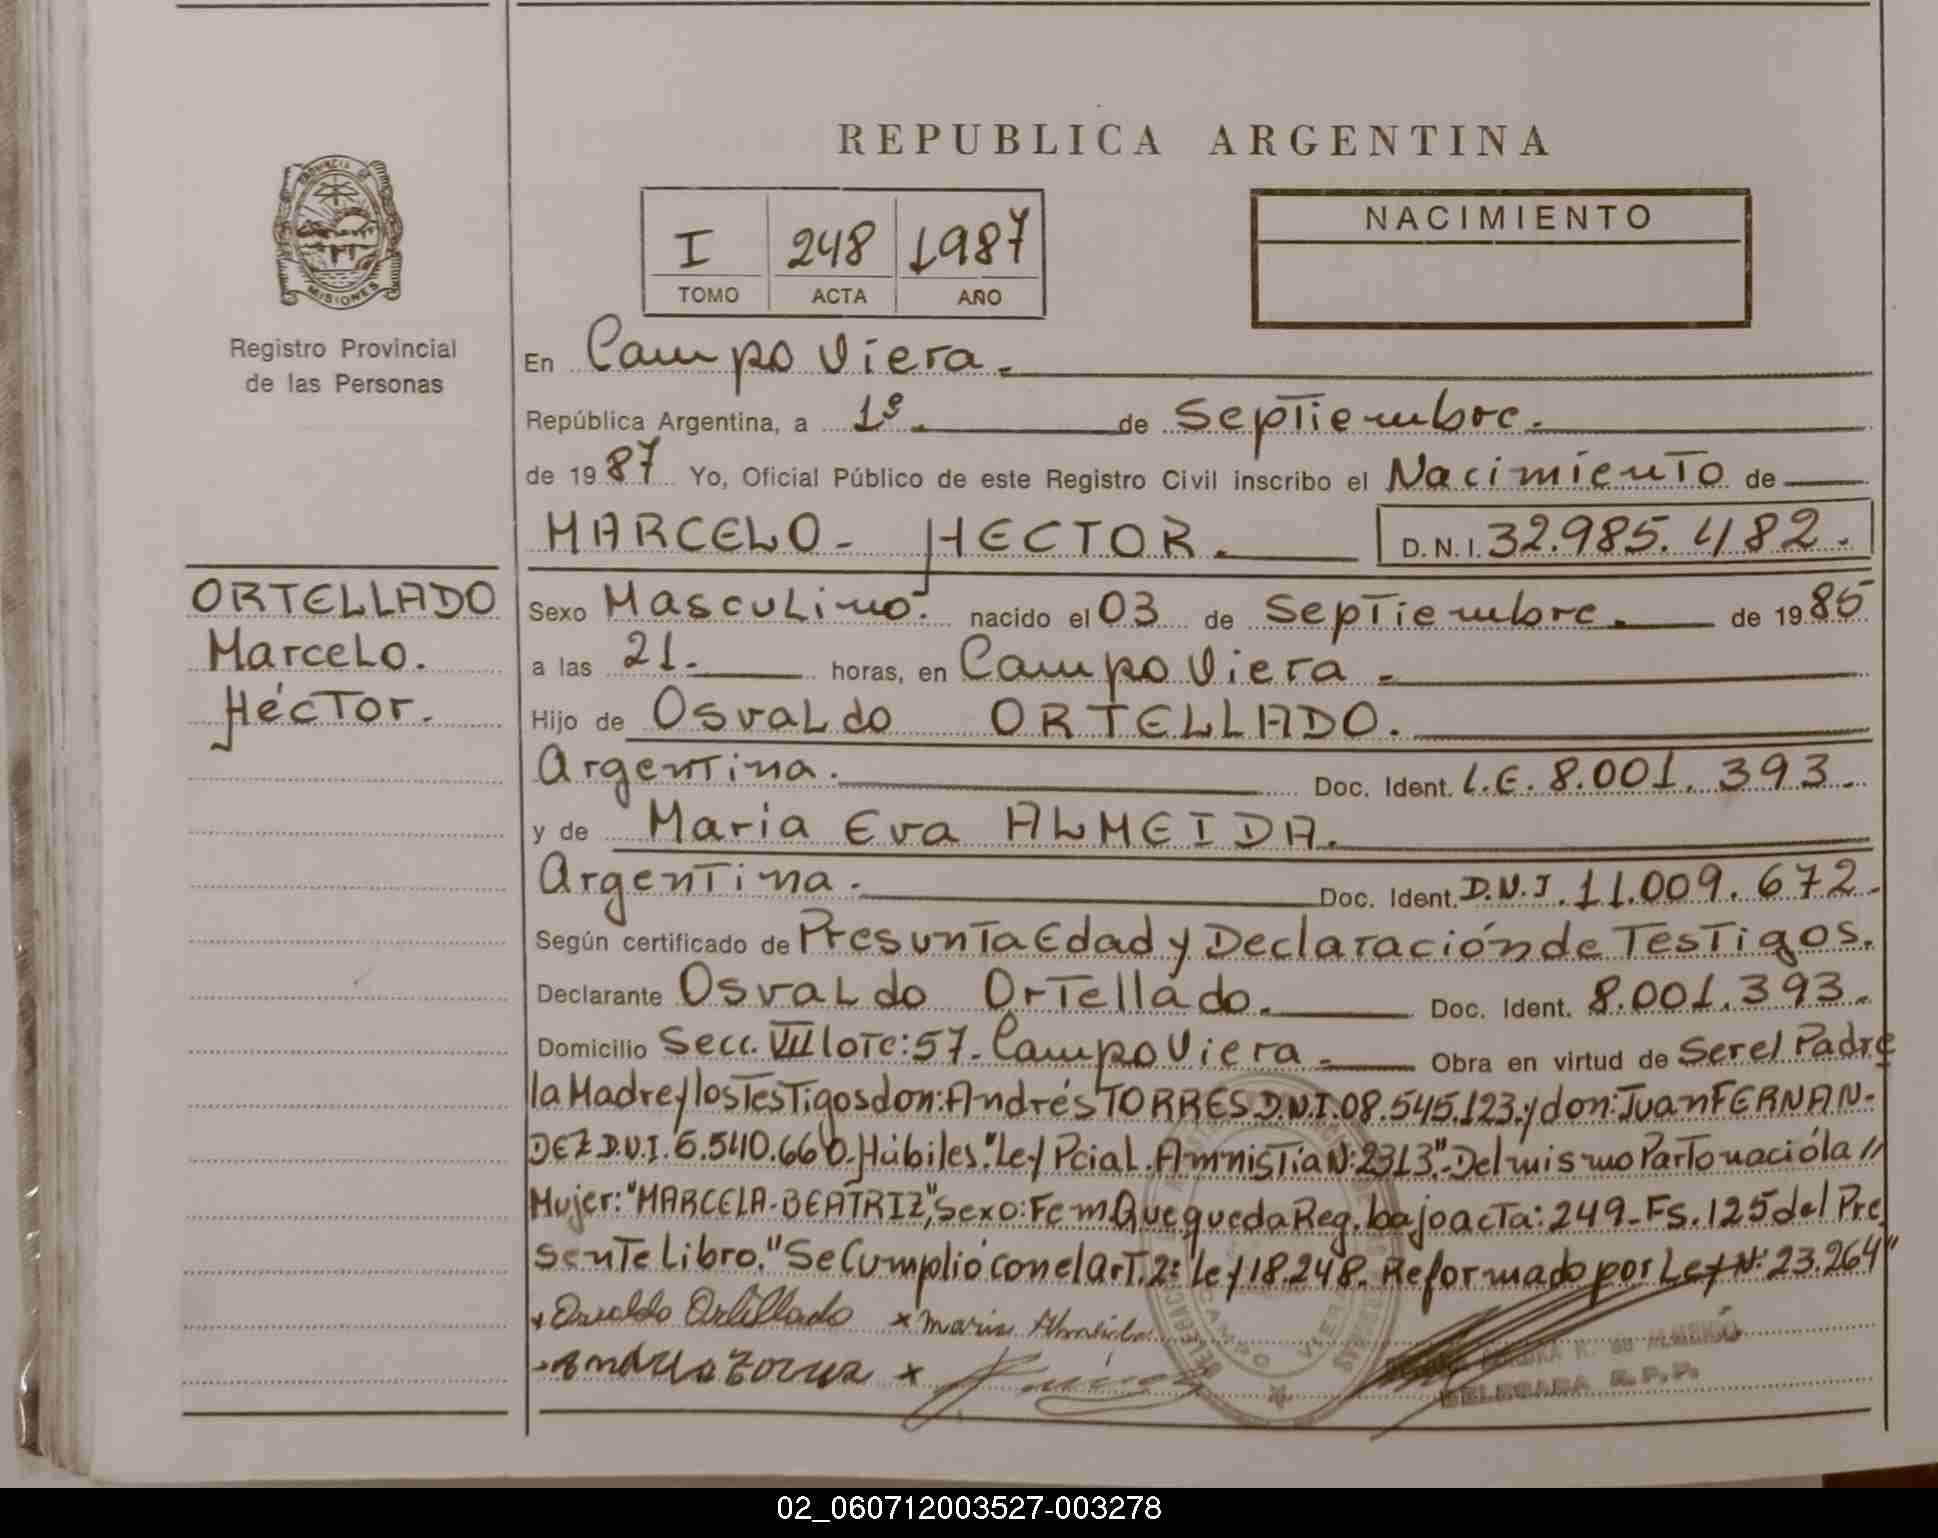 REPUBLICA ARGENTINA
PROVINCIA
MISIONES
Registro Provincial
de las Personas
I 248 1987
TOMO ACTA AÑO
NACIMIENTO
En Campo Viera.
República Argentina, a 1º. de Septiembre.
de 1987 Yo, Oficial Público de este Registro Civil inscribo el Nacimiento de
MARCELO- HECTOR. D.N.I. 32.985.482.
ORTELLADO
Marcelo.
Héctor.
Sexo Masculino. nacido el 03 de Septiembre. de 1985
a las 21. horas, en Campo Viera.
Hijo de Osvaldo ORTELLADO.
Argentina. Doc. Ident. L.E. 8.001.393.
y de Maria Eva ALMEIDA.
Argentina. Doc. Ident. D.N.I. 11.009.672.
Según certificado de Presunta Edad y Declaración de Testigos.
Declarante Osvaldo Ortellado. Doc. Ident. 8.001.393.
Domicilio Secc. VII lote:57. Campo Viera. Obra en virtud de Ser el Padre
la Madre y los Testigos don: Andrés TORRES D.N.I. 08.545.123. y don: Juan FERNAN-
DEZ D.N.I. 6.540.660. Hábiles. "Ley Pcial. Amnistía N: 2313". Del mismo Parto nació la //
Mujer: "MARCELA-BEATRIZ", Sexo: Fem. Que queda Reg. bajo acta: 249- Fs. 125 del Pre
sente Libro. "Se Cumplió con el art. 2: Ley 18.248. Reformado por Ley N: 23.264"
x Osvaldo Ortellado x Maria Almeida
Andres Torres x
CAMPO VIERA
DELEGADA R.P.P.
02_060712003527-003278